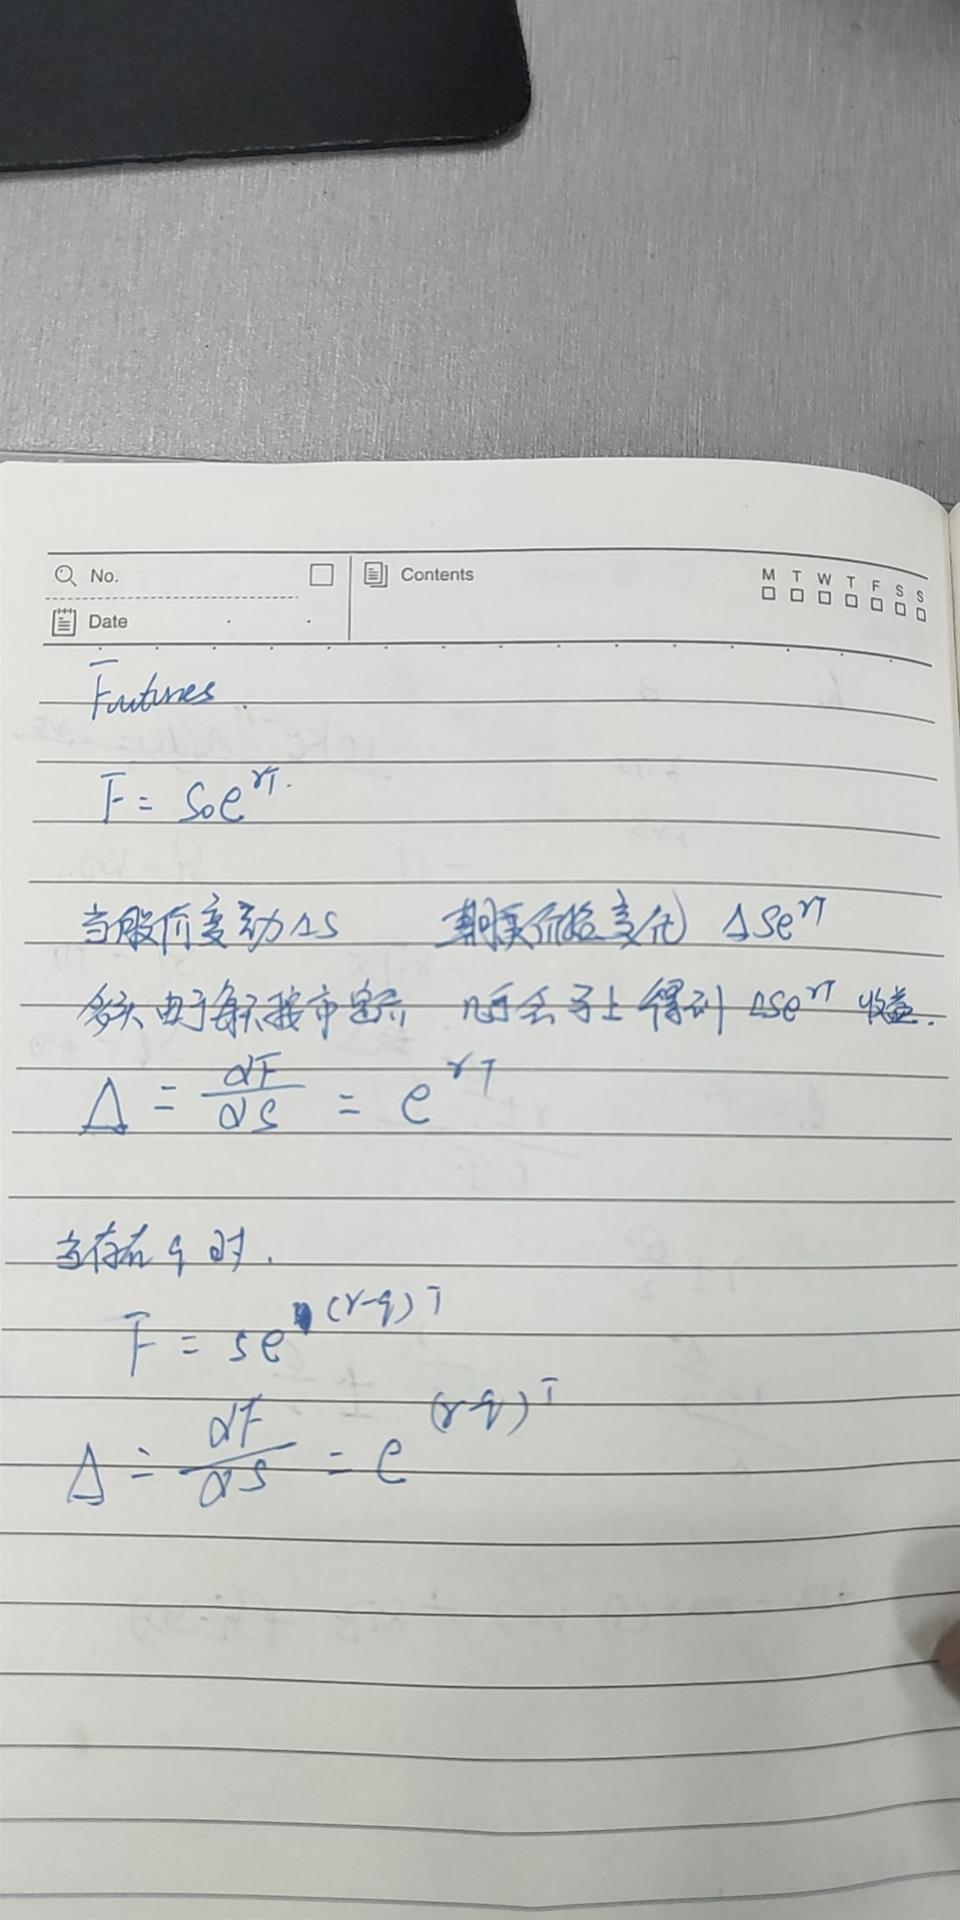 No.
Contents
M T W T F S S
Date
Futures.
F = S₀e^{rT}.
当股价变动 ΔS 期货价格变化 ΔSe^{rT}
多头由于每天按市定价 几乎会马上得到 ΔSe^{rT} 收益.
Δ = dF/dS = e^{rT}
当存在 q 时.
F = Se^{(r-q)T}
Δ = dF/dS = e^{(r-q)T}